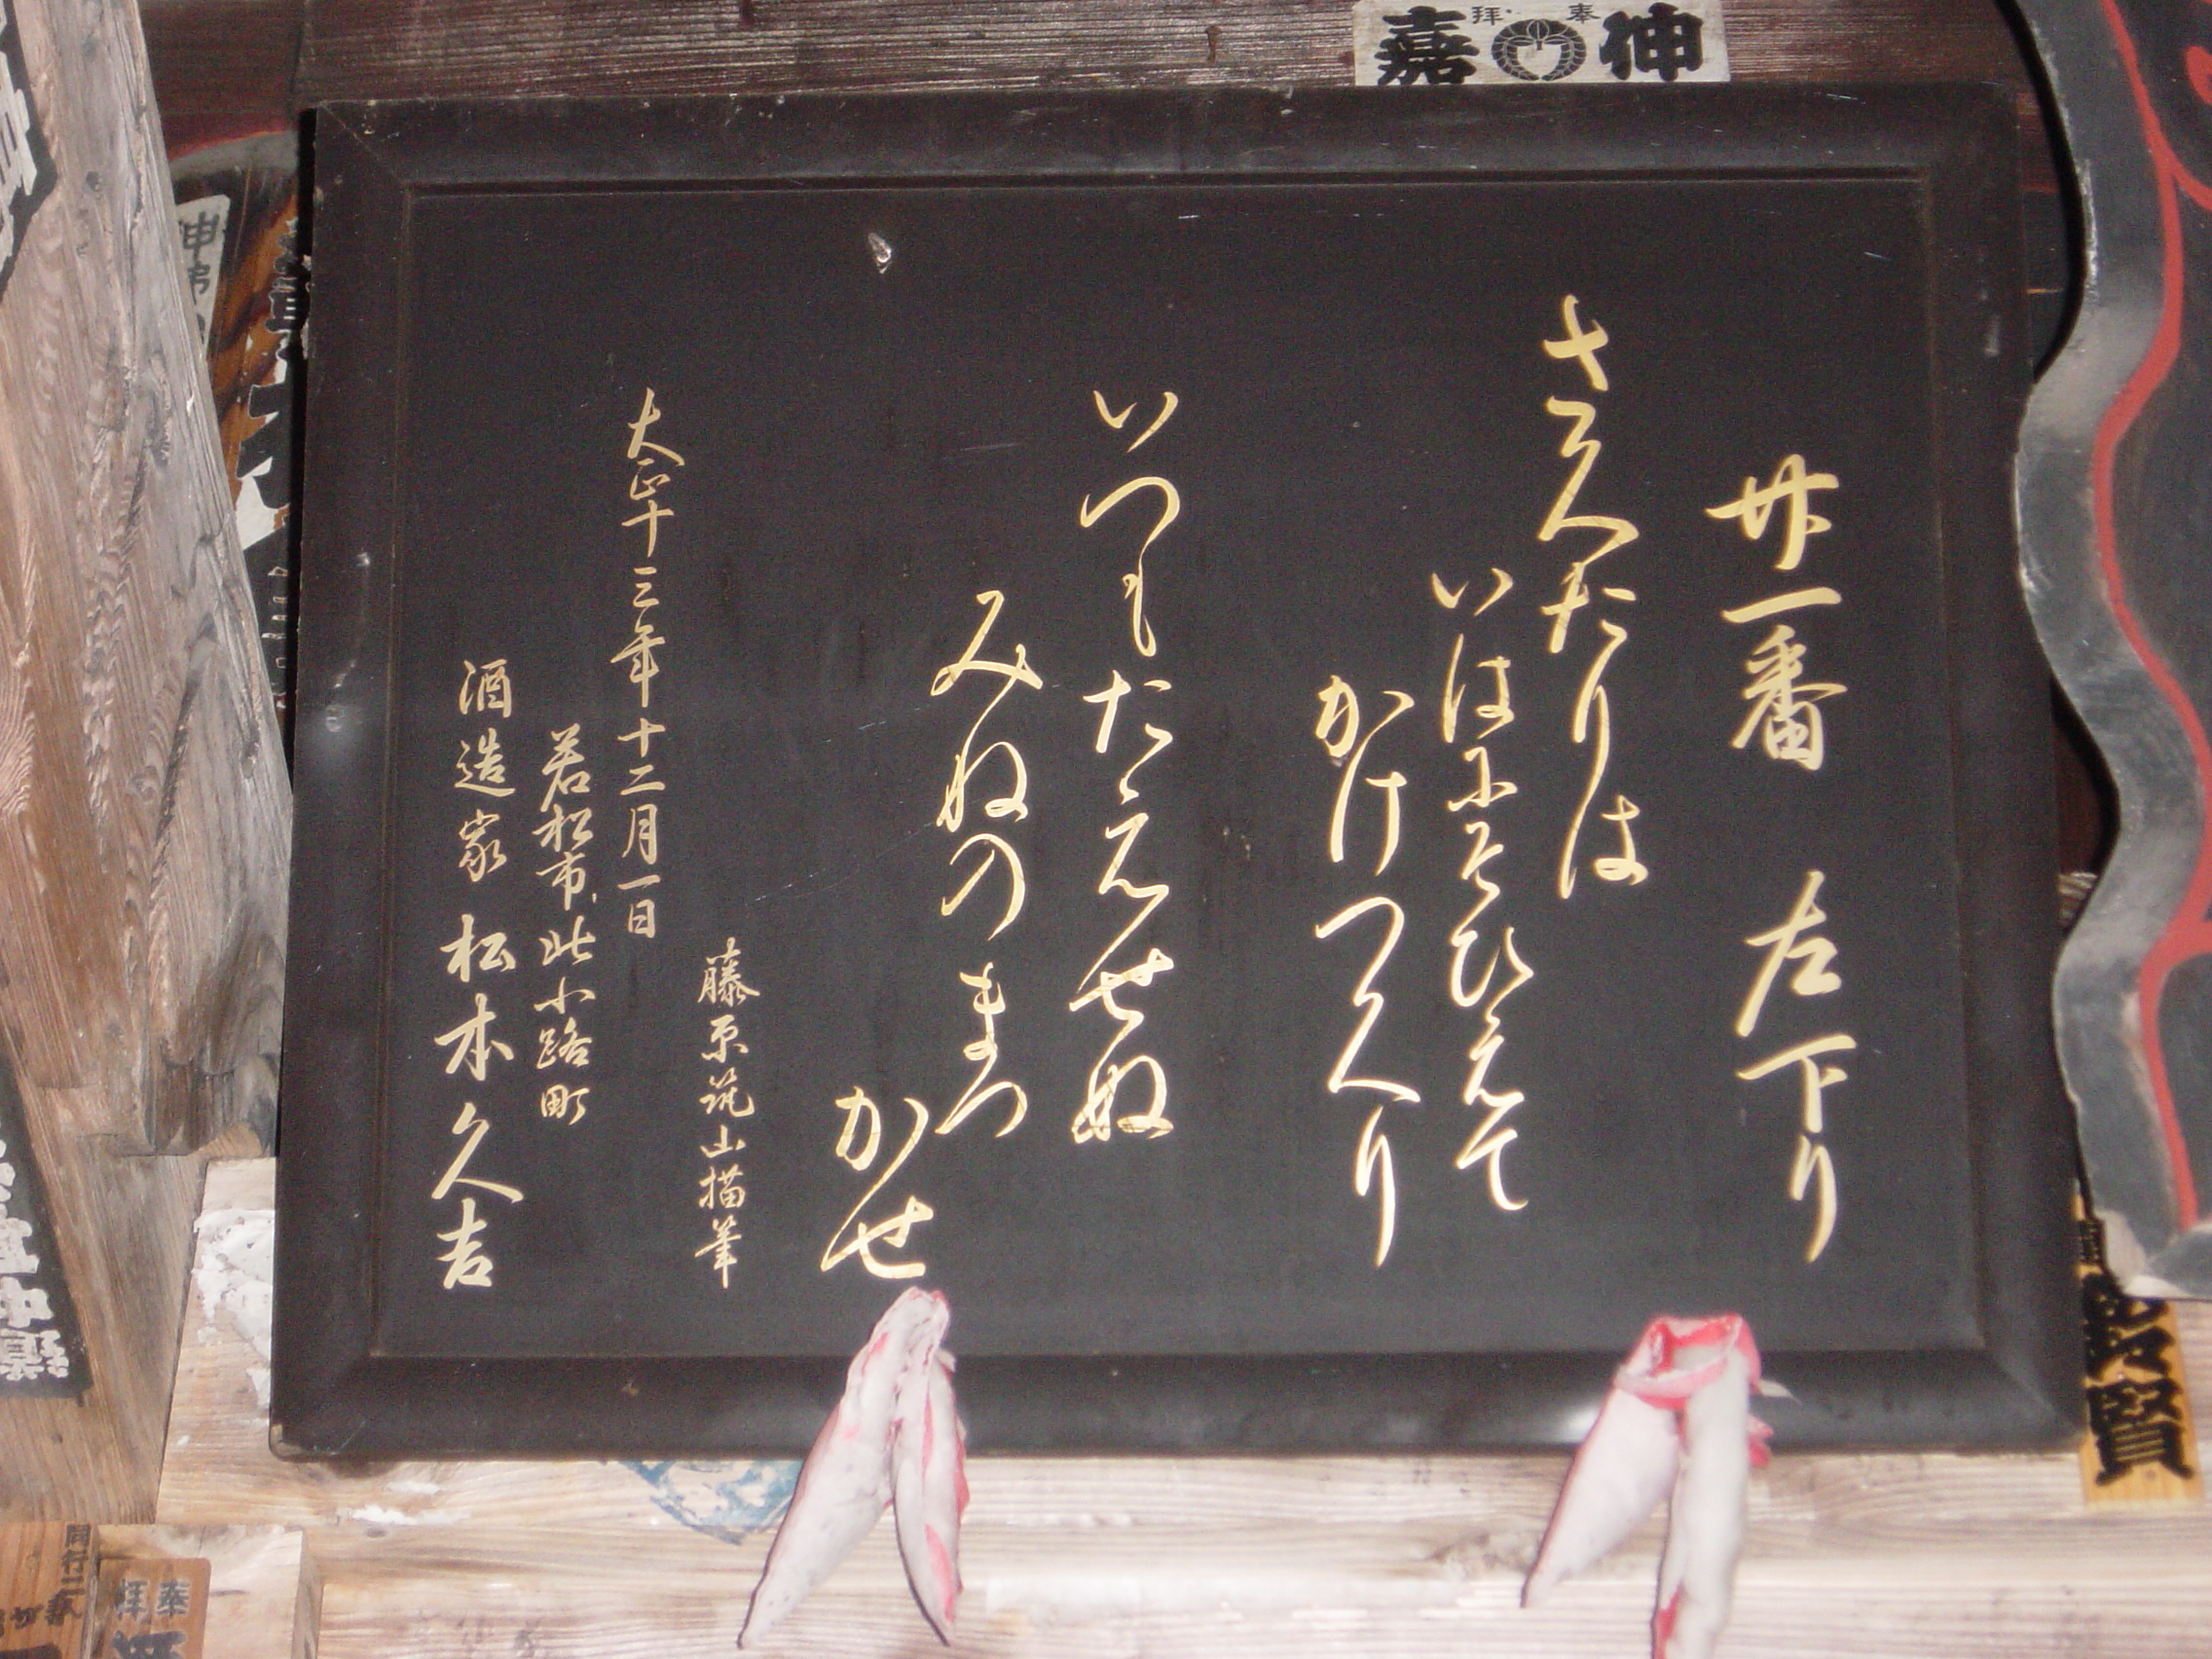 廿一番 左下り
さくたりは
いはにそひえて
かけつくり
いつもたえせぬ
みねのまつ
かせ
藤原筑山描筆
大正十三年十二月一日
若松市北小路町
酒造家 松本久吉
奉拝
伸 嘉
賢
同行二人
奉拝